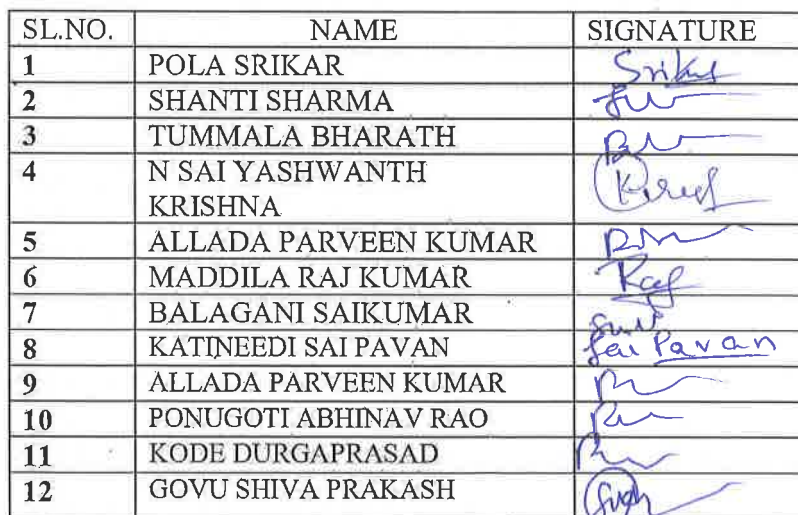 SL.NO. NAME SIGNATURE
1 POLA SRIKAR Srikar
2 SHANTI SHARMA
3 TUMMALA BHARATH
4 N SAI YASHWANTH
KRISHNA
5 ALLADA PARVEEN KUMAR
6 MADDILA RAJ KUMAR Raj
7 BALAGANI SAIKUMAR
8 KATINEEDI SAI PAVAN Sai Pavan
9 ALLADA PARVEEN KUMAR
10 PONUGOTI ABHINAV RAO
11 KODE DURGAPRASAD
12 GOVU SHIVA PRAKASH